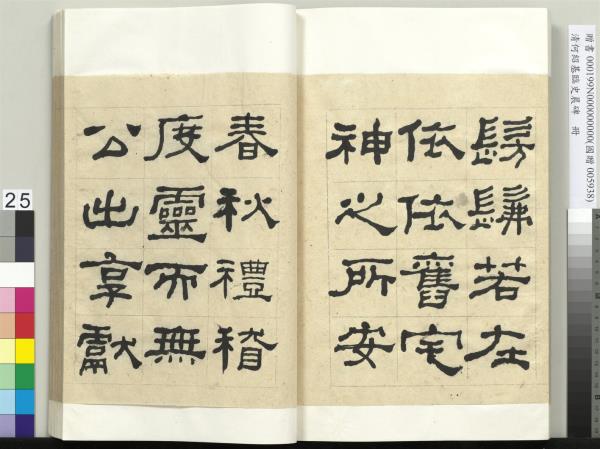 髣髴若在
依依舊宅
神之所安
春秋禮稽
度靈而無
公出享獻
贈書 000199N000000000(國贈 005938)
清何紹基臨史晨碑 冊
25